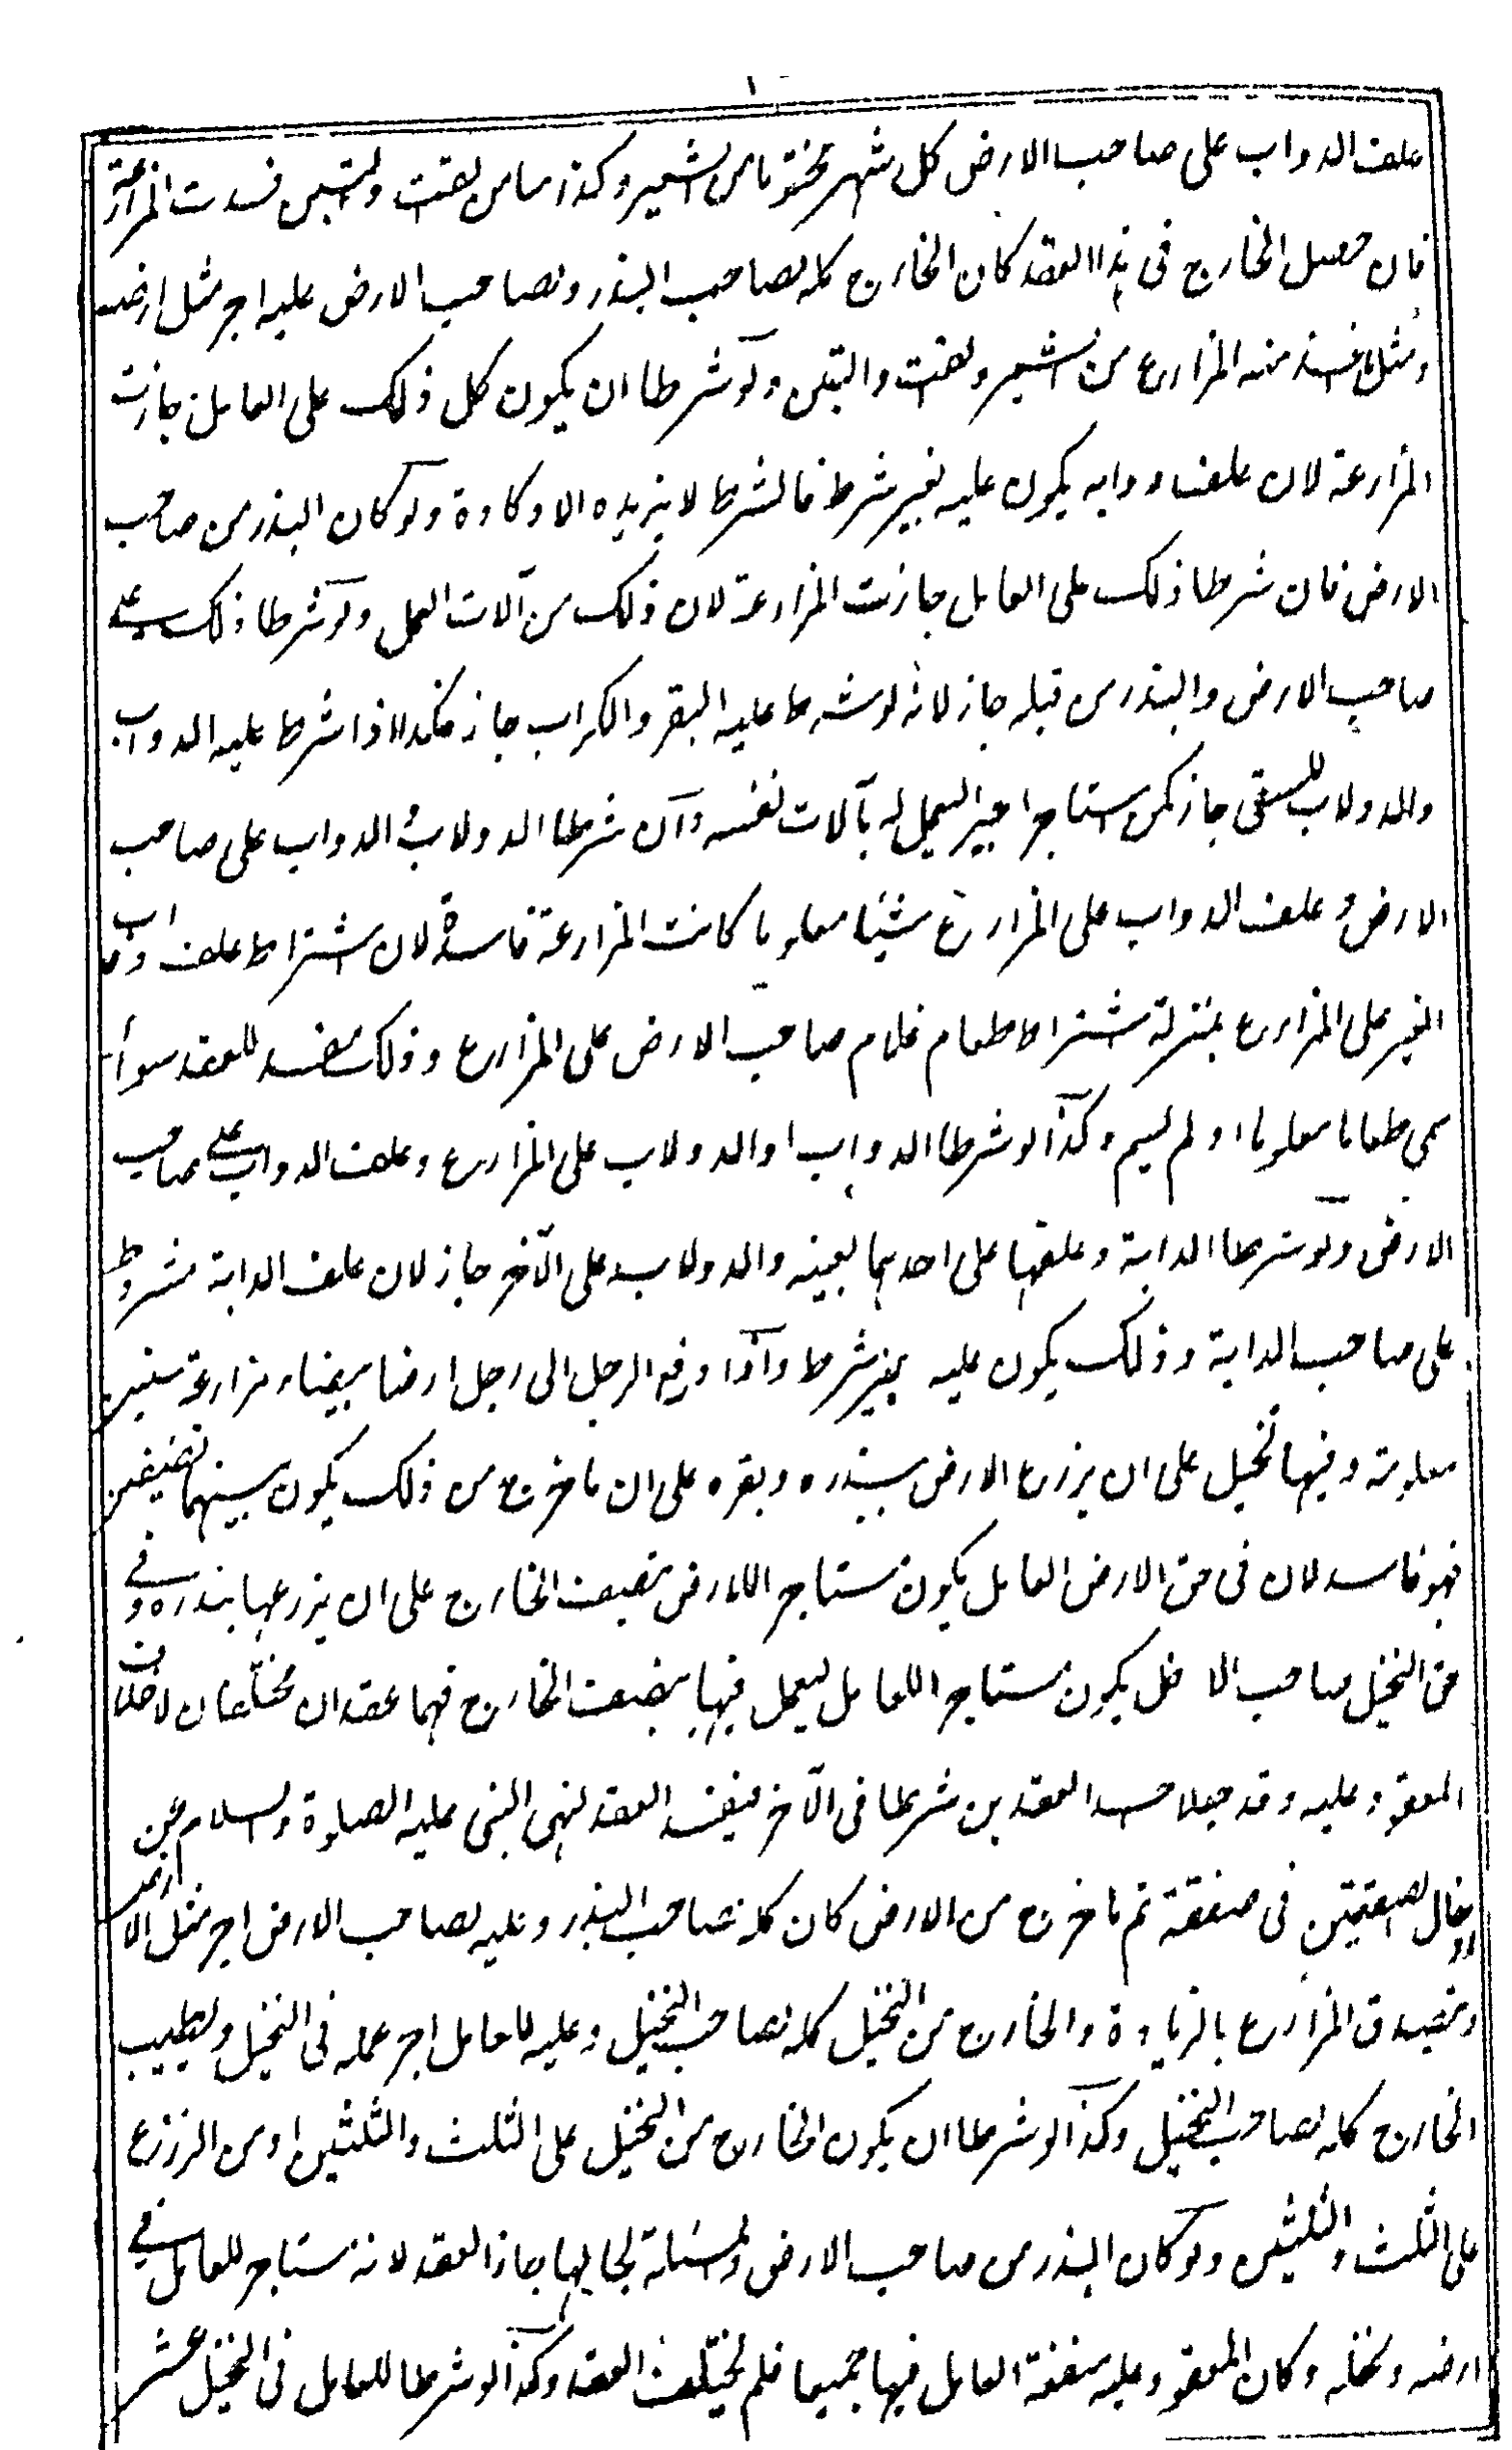 علف الدواب على صاحب الارض كل شهر مختوما من الشعير وكذا وسا من القت والتبن فسدت المزارعة
فان حصل الخارج فى هذا العقد كان الخارج كله لصاحب البذر ولصاحب الارض عليه اجر مثل ارضه
ومثل ما اخذ منه المزارع من الشعير والقت والتبن ولو شرطا ان يكون كل ذلك على العامل جازت
المزارعة لان علف دوابه يكون عليه بغير شرط فالشرط لا يزيده الا وكادة ولو كان البذر من صاحب
الارض فان شرطا ذلك على العامل جازت المزارعة لان ذلك من آلات العمل ولو شرطا ذلك على
صاحب الارض والبذر من قبله جاز لانه لو شرط عليه البقر والكراب جاز فكذلك اذا شرط عليه الدواب
والدولاب للسقى جاز كمن استاجر اجيرا ليعمل له بآلات نفسه وان شرطا الدولاب والدواب على صاحب
الارض وعلف الدواب على المزارع شيئا معلوما كانت المزارعة فاسدة لان اشتراط علف دواب
الغير على المزارع بمنزلة اشتراط طعام غلام صاحب الارض على المزارع وذلك مفسد للعقد سواء
سمى طعاما معلوما او لم يسم وكذا لو شرطا الدواب او الدولاب على المزارع وعلف الدواب على صاحب
الارض ولو شرطا الدابة وعلفها على احدهما بعينه والدولاب على الآخر جاز لان علف الدابة مشروط
على صاحب الدابة وذلك يكون عليه بغير شرط واذا دفع الرجل الى رجل ارضا بيضاء مزارعة سنين
معلومة وفيها نخيل على ان يزرع الارض ببذره وبقره على ان ما خرج من ذلك يكون بينهما نصفين
فهو فاسد لان فى حق الارض العامل يكون مستاجرا للارض بنصف الخارج على ان يزرعها ببذره وفى
حق النخيل صاحب الا خل يكون مستاجرا للعامل ليعمل فيها بنصف الخارج فهما عقدان مختلفان لاختلاف
المعقود عليه وقد جعلا احد العقدين شرطا فى الآخر فيفسد العقد لنهى النبى عليه الصلوة والسلام عن
ادخال الصفقتين فى صفقة ثم ما خرج من الارض كان كله لصاحب البذر وعليه لصاحب الارض اجر مثل الارض
ويتصدق المزارع بالزيادة والخارج من النخيل كله لصاحب النخيل وعليه للعامل اجر عمله فى النخيل ويطيب
الخارج كله لصاحب النخيل وكذا لو شرطا ان يكون الخارج من النخيل على الثلث والثلثين او من الزرع
على الثلث والثلثين ولو كان البذر من صاحب الارض والمسئلة بحالها جاز العقد لانه استاجر للعامل فى
ارضه ونخله وكان المعقود عليه منفعة العامل فيها جميعا فلم يختلف العقد وكذا لو شرطا للعامل فى النخيل عشر